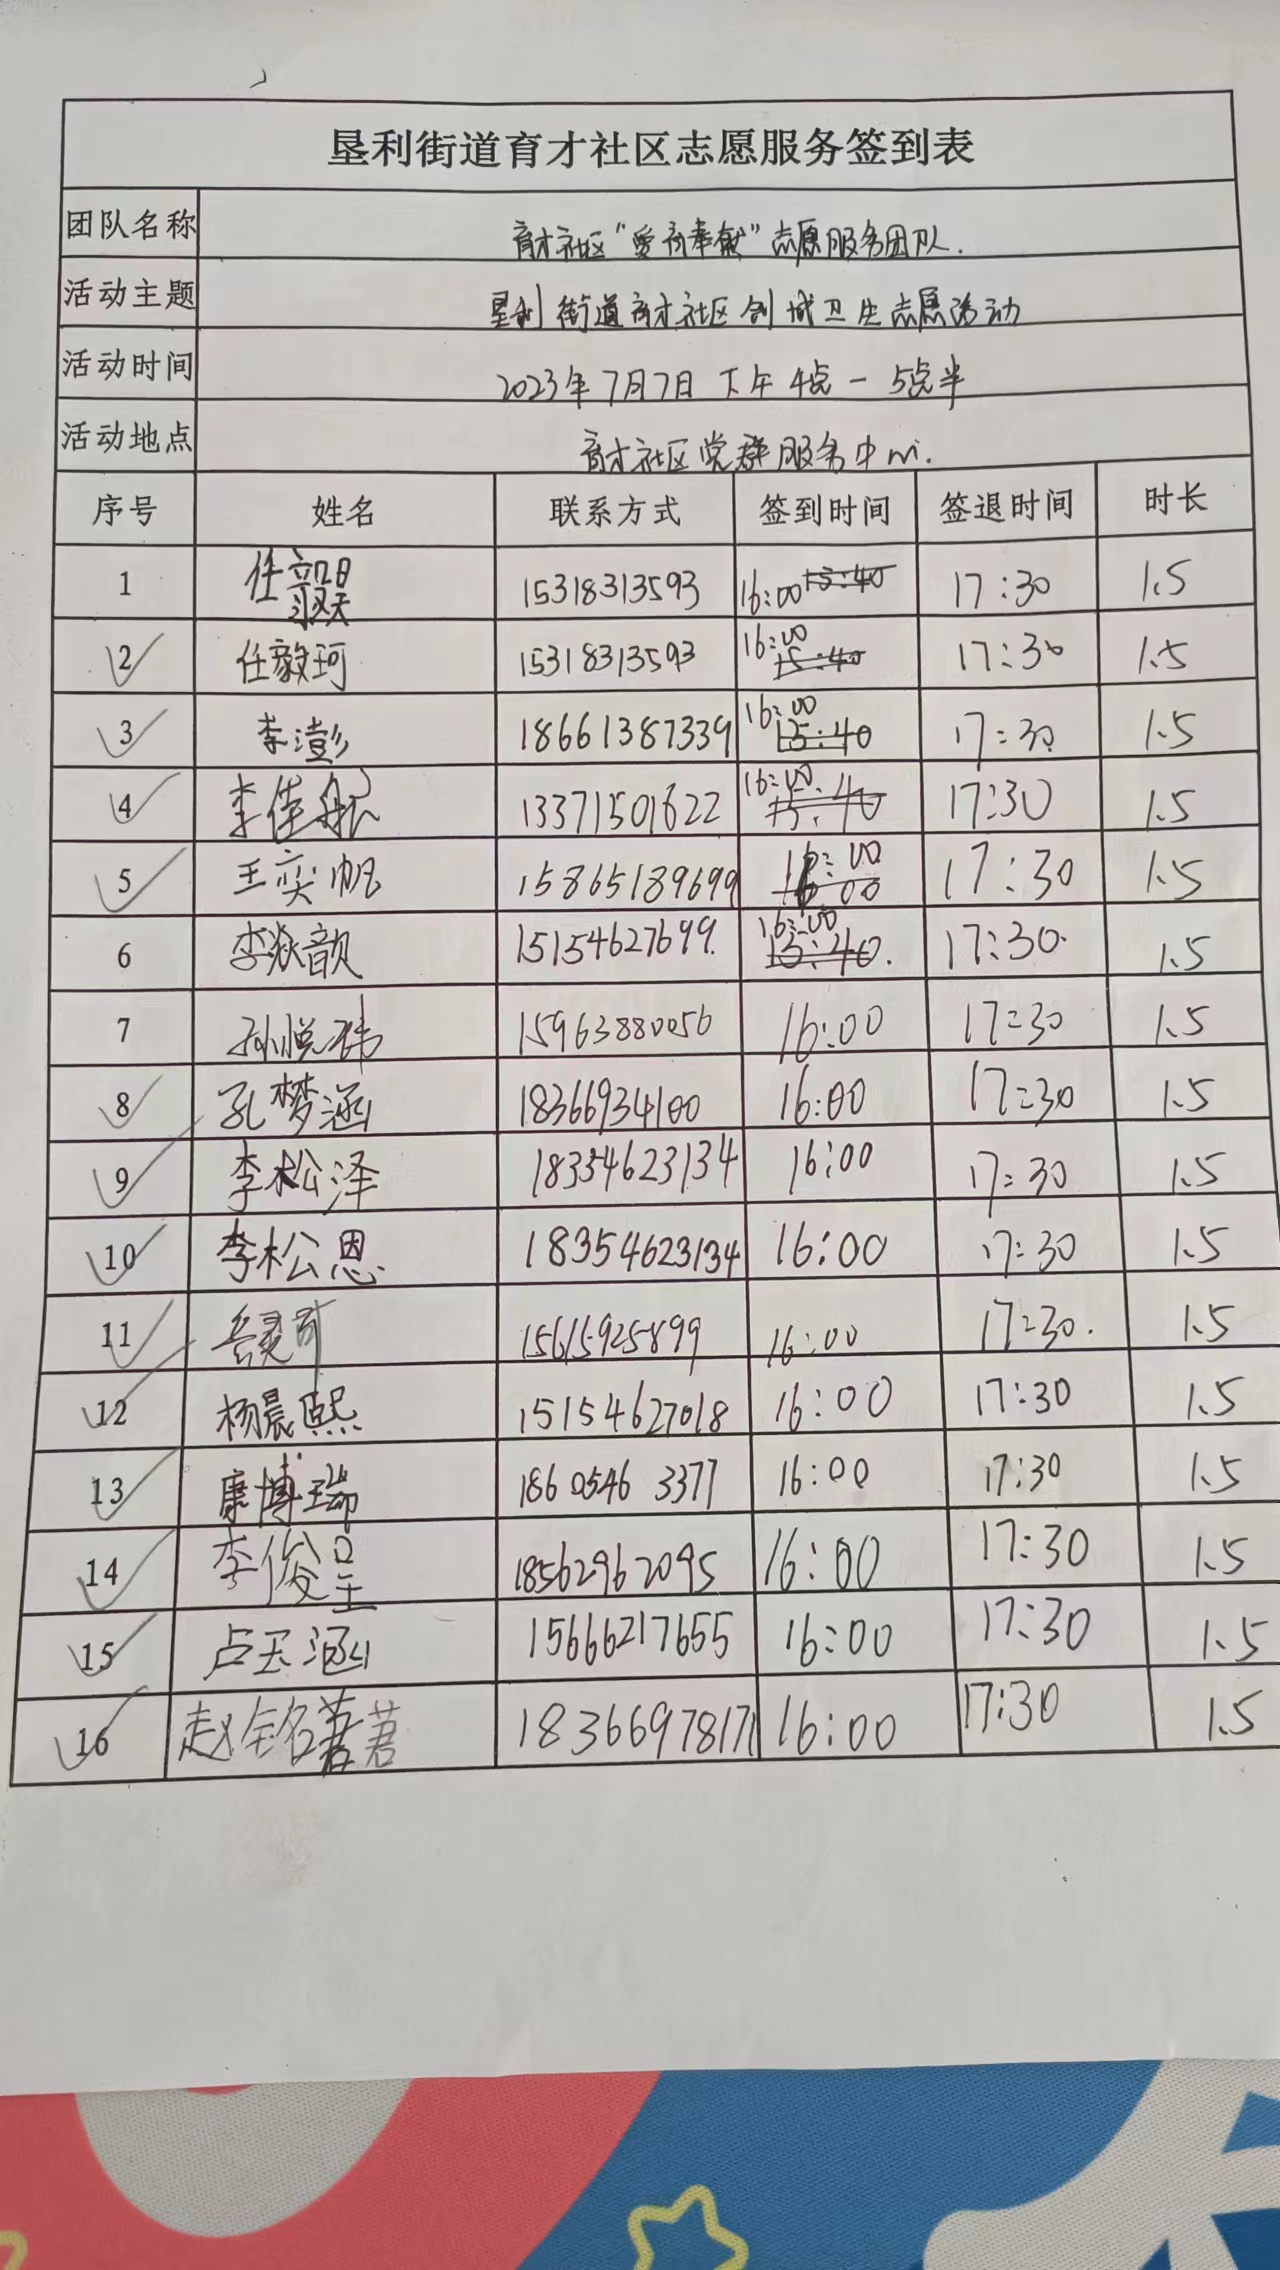 垦利街道育才社区志愿服务签到表
团队名称 育才社区“爱育奉献”志愿服务团队.
活动主题 垦利街道育才社区创城卫生志愿活动
活动时间 2023年7月7日下午4点-5点半
活动地点 育才社区党群服务中心.
序号 姓名 联系方式 签到时间 签退时间 时长
1 任毅昊 15318313593 16:00 15:40 17:30 1.5
2 任毅珂 15318313593 16:00 15:40 17:30 1.5
3 李澎 18661387339 16:00 15:40 17:30 1.5
4 李佳航 13371501622 16:00 15:40 17:30 1.5
5 王奕帆 15865189699 16:00 17:30 1.5
6 李焱歆 15154627699. 16:00 15:40. 17:30. 1.5
7 孙悦祎 15963880056 16:00 17:30 1.5
8 孔梦涵 18366934100 16:00 17:30 1.5
9 李松泽 18354623134 16:00 17:30 1.5
10 李松恩 18354623134 16:00 17:30 1.5
11 15615925899 16:00 17:30. 1.5
12 杨晨熙 15154627018 16:00 17:30 1.5
13 康博瑞 186 0546 3377 16:00 17:30 1.5
14 李俊呈 18562962095 16:00 17:30 1.5
15 卢玉涵 15666217655 16:00 17:30 1.5
16 赵铭著 18366978171 16:00 17:30 1.5